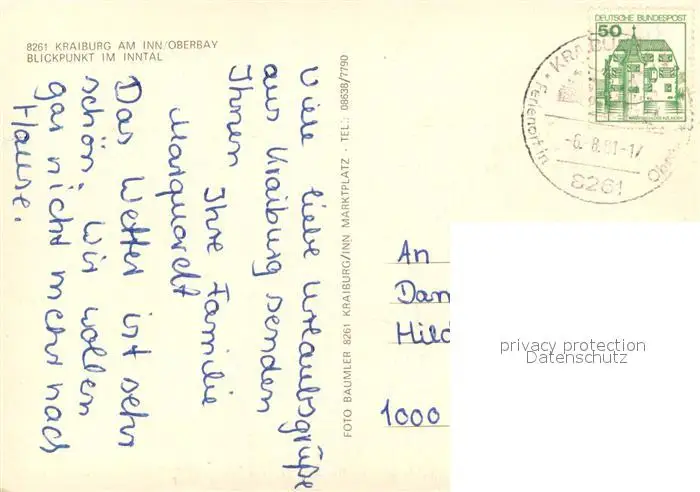 8261 KRAIBURG AM INN/OBERBAY
BLICKPUNKT IM INNTAL
Viele liebe Urlaubsgrüße
aus Kraiburg senden
Ihnen
Ihre Familie
Marquardt
Das Wetter ist sehr
schön. Wir wollen
gar nicht mehr nach
Hause.
FOTO BAUMLER 8261 KRAIBURG/INN MARKTPLATZ . TEL.: 08638/7790
DEUTSCHE BUNDESPOST
50
KRAIBU
Ferienort in
-6.8.81-1
8261
An
Dam
Hild
1000
privacy protection
Datenschutz